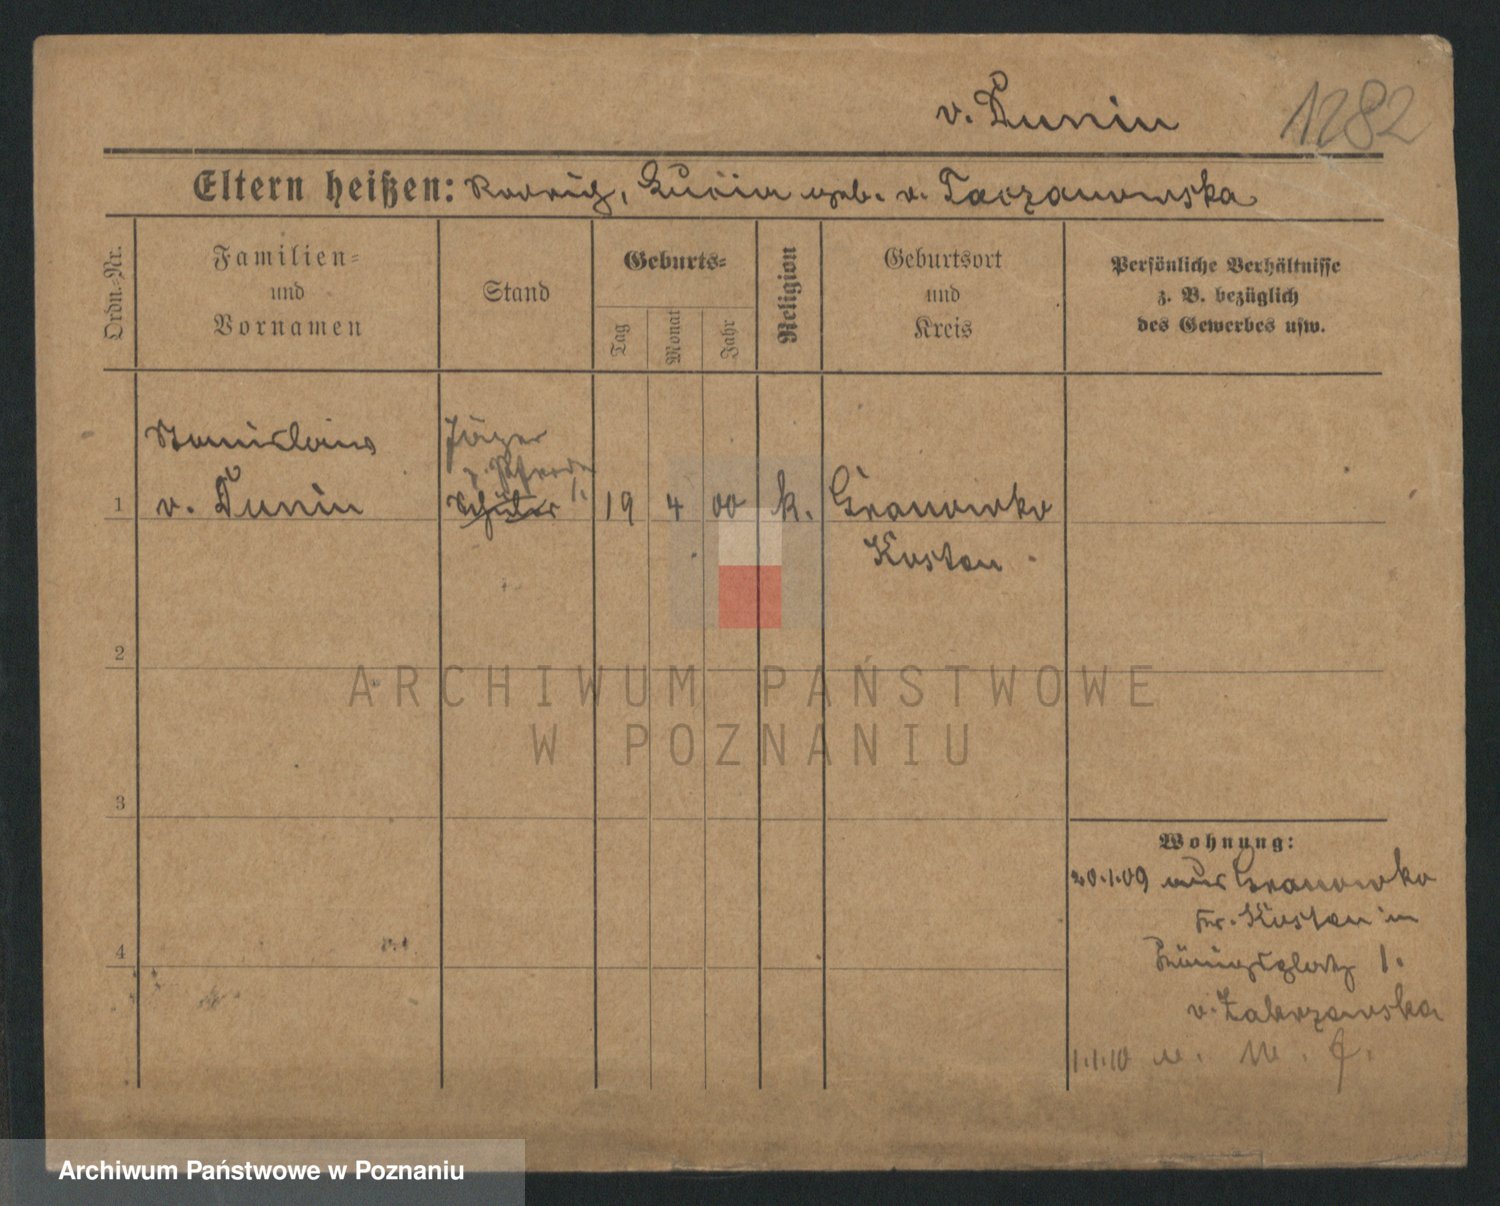 v. Dunin 1282
Eltern heißen: Rodrig, Lucia geb. v. Taczanowska
Ordn.-Nr.
Familien-
und
Vornamen
Stand
Geburts-
Tag
Monat
Jahr
Religion
Geburtsort
und
Kreis
Persönliche Verhältnisse
z. B. bezüglich
des Gewerbes usw.
Stanislaus
v. Dunin
Jäger
z. Pferde
1.
Schüler
1
19 4 00 k. Granowko
Kosten
2
3
4
Wohnung:
20.1.09 aus Granowko
Kr. Kosten in
Königsplatz 1.
v. Zakrzewska
1.1.10
ARCHIWUM PAŃSTWOWE
W POZNANIU
Archiwum Państwowe w Poznaniu